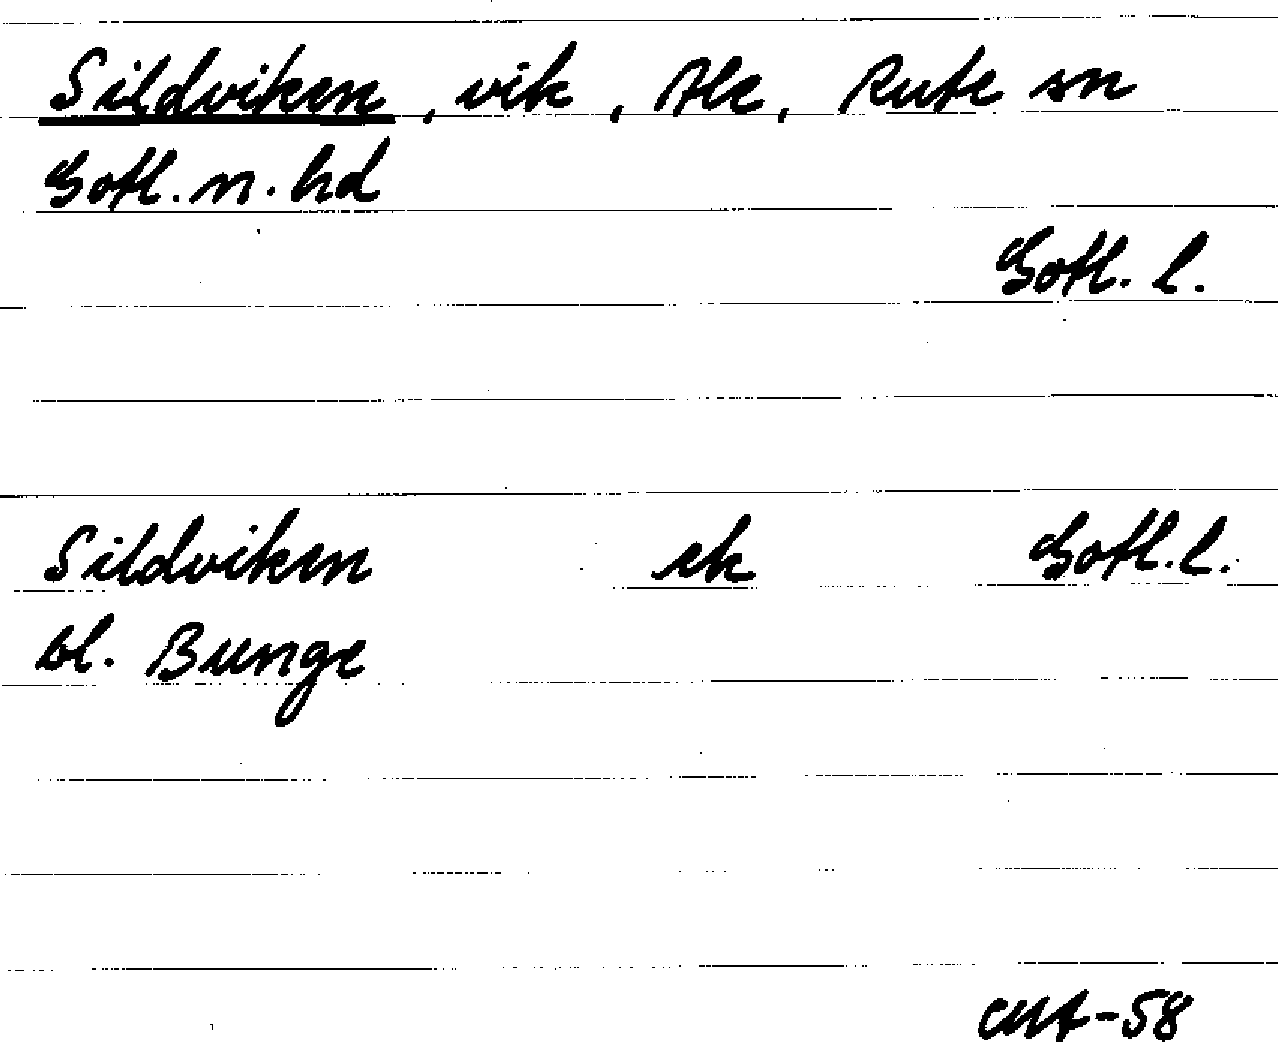 Sildviken, vik, Ale, Rute sn
Gotl. n. hd
Gotl. l.
Sildviken ek Gotl. l.
bl. Bunge
-58